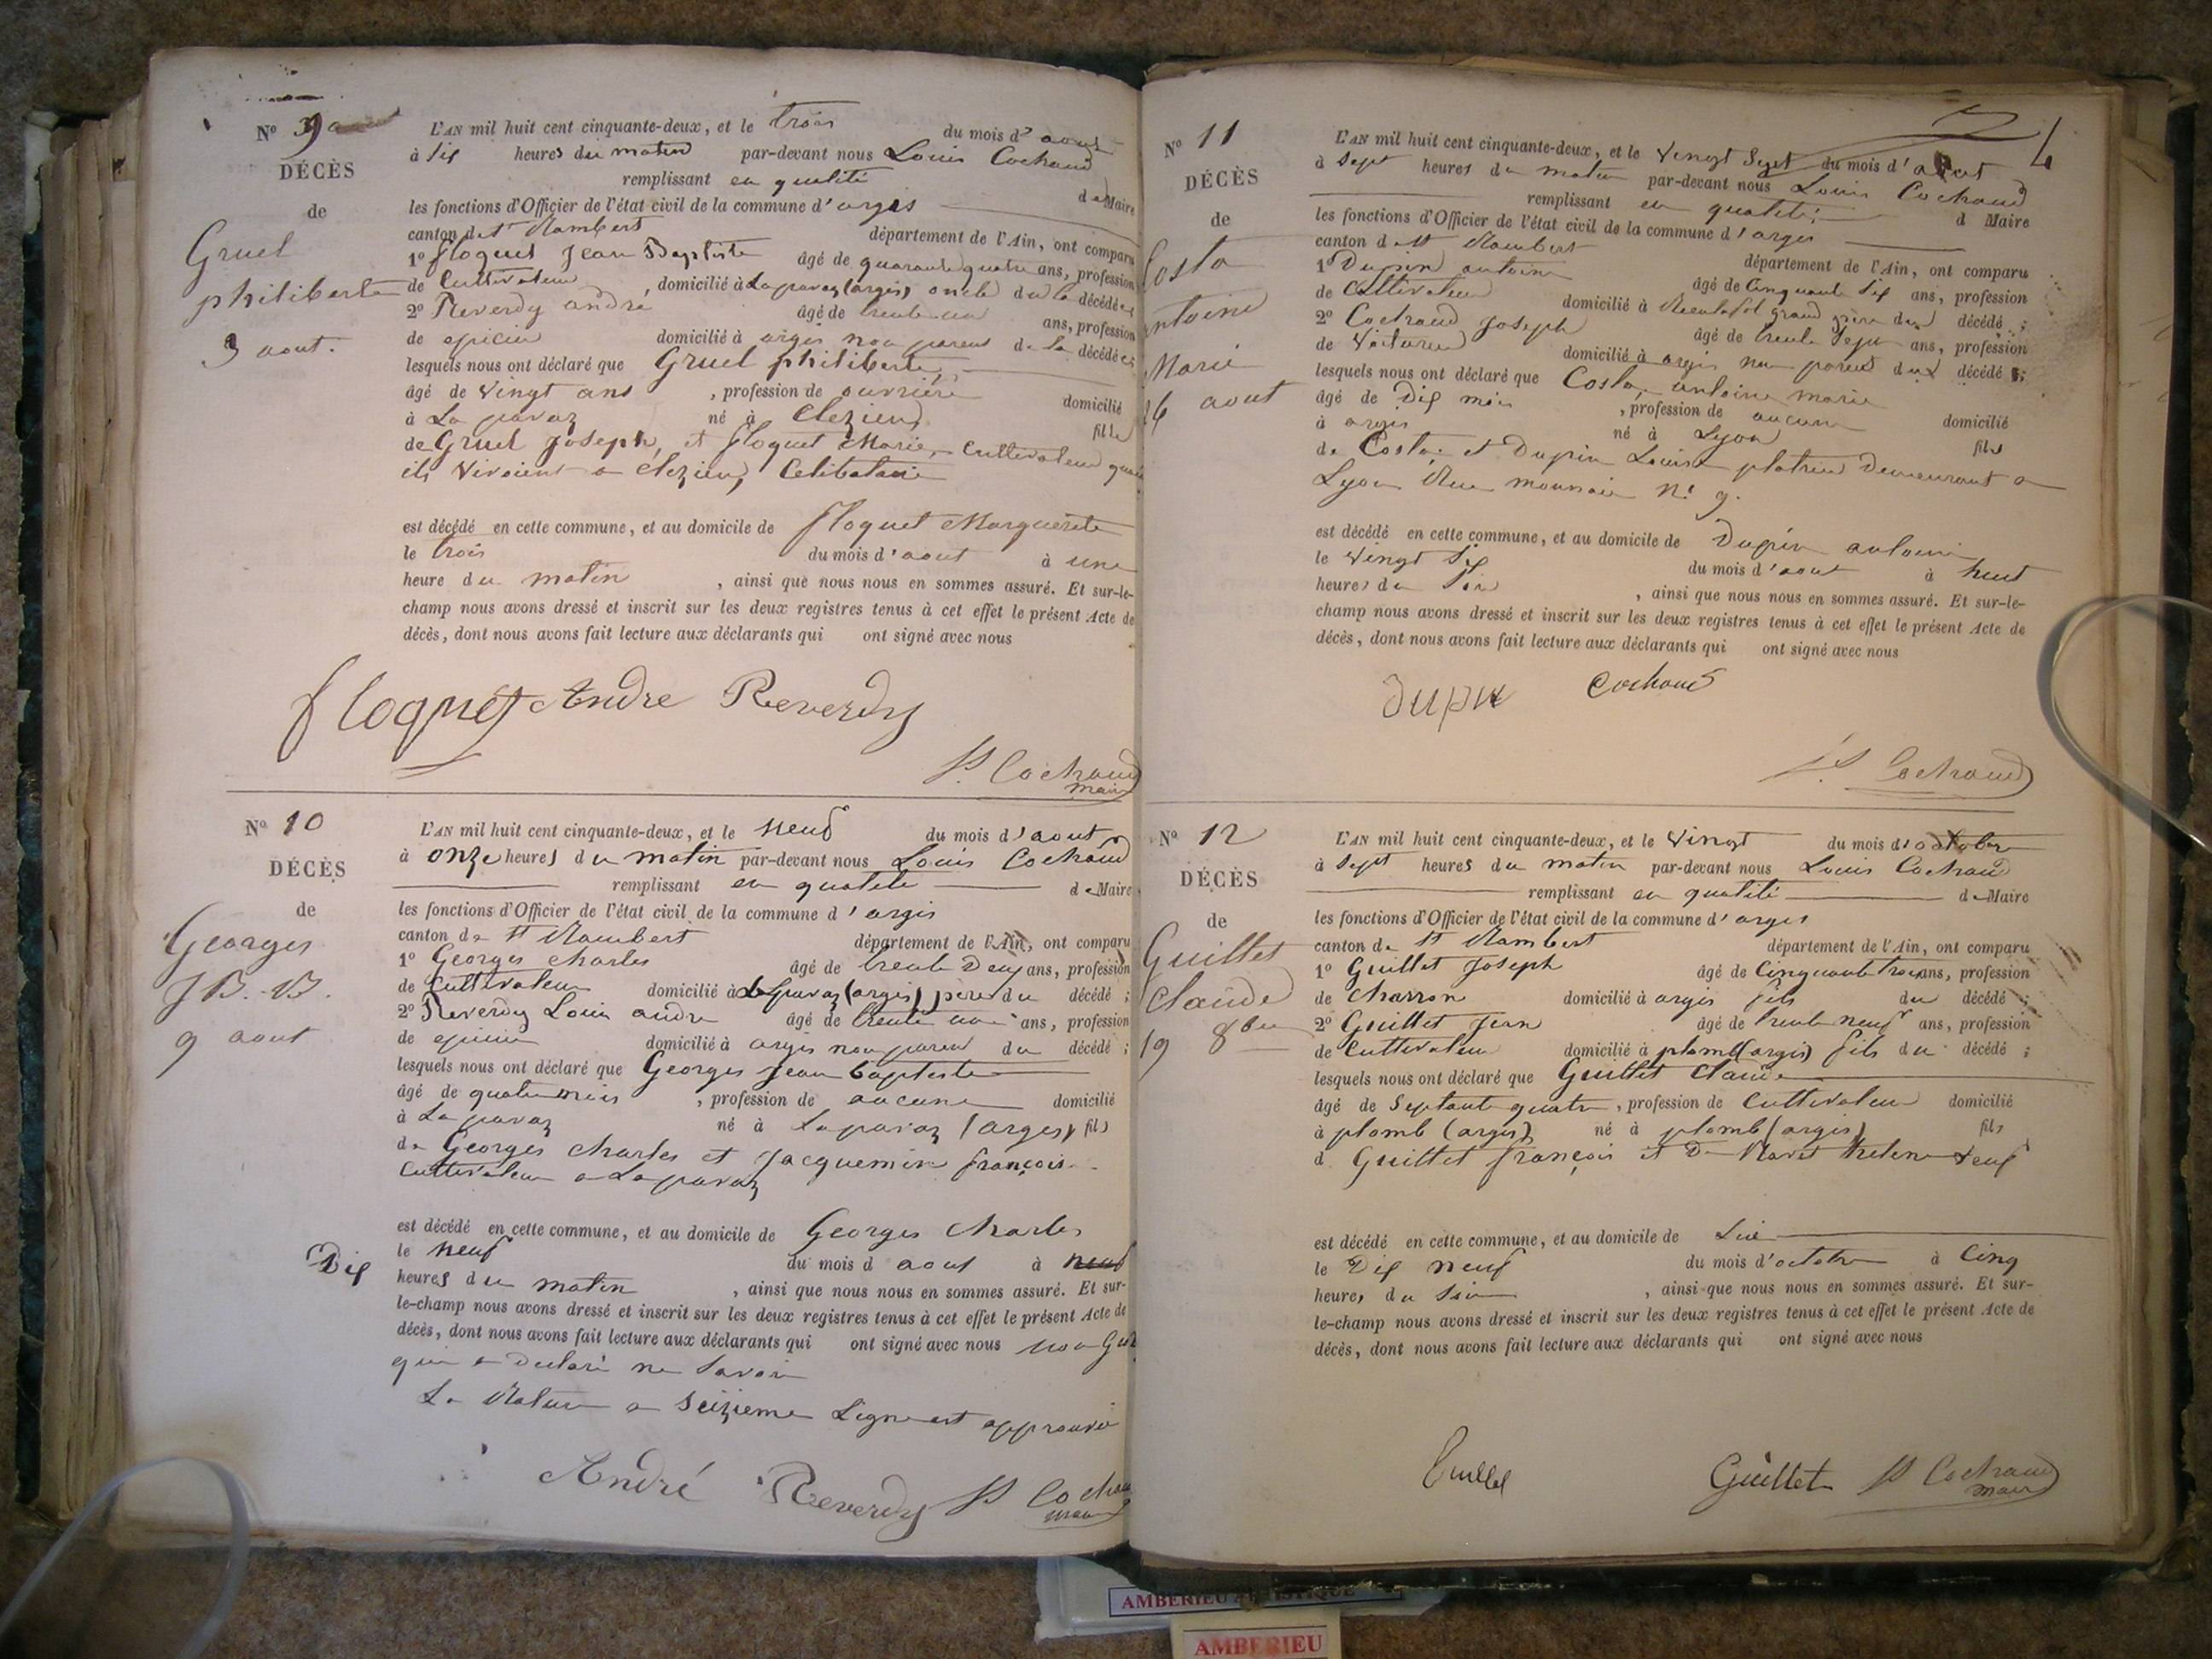 N° 9
DÉCÈS
de
Gruel
philiberte
3 aout.
L'AN mil huit cent cinquante-deux, et le trois du mois d' aout
à six heures du matin par-devant nous Louis Cochaud
remplissant en qualité de Maire
les fonctions d'Officier de l'état civil de la commune d'argis
canton de St Rambert département de l'Ain, ont comparu
1° floquet Jean Baptiste âgé de quarante quatre ans, profession
de Cultivateur, domicilié à La pavaz (argis) oncle de la décédée
2° Reverdy andré âgé de trente un ans, profession
de epicier domicilié à argis non parent de la décédée
lesquels nous ont déclaré que Gruel philiberte
âgé de Vingt ans, profession de ouvriere domicilié
à La pavaz né à Clezieu fille
de Gruel Joseph, et floquet Marie, Cultivateur quand
ils Vivoient a Clezieu, Celibataire
est décédé en cette commune, et au domicile de floquet Marguerite
le trois du mois d'aout à une
heure du matin, ainsi que nous nous en sommes assuré. Et sur-le-
champ nous avons dressé et inscrit sur les deux registres tenus à cet effet le présent Acte de
décès, dont nous avons fait lecture aux déclarants qui ont signé avec nous
floquet André Reverdy
Cochaud
maire
N° 10
DÉCÈS
de
Georges
J B.
9 aout
L'AN mil huit cent cinquante-deux, et le neuf du mois d'aout
à onze heures du matin par-devant nous Louis Cochaud
remplissant en qualité de Maire
les fonctions d'Officier de l'état civil de la commune d'argis
canton de St Rambert département de l'Ain, ont comparu
1° Georges Charles âgé de trente Deux ans, profession
de Cultivateur domicilié à La pavaz (argis) père du décédé ;
2° Reverdy Louis andre âgé de trente un ans, profession
de epicier domicilié à argis non parent du décédé ;
lesquels nous ont déclaré que Georges Jean baptiste
âgé de quatre mois, profession de aucune domicilié
à La pavaz né à La pavaz (argis) fils
de Georges Charles et Jacquemin françoise
Cultivateur a La pavaz
est décédé en cette commune, et au domicile de Georges Charles
le neuf du mois d aout à neuf
Dix heures du matin, ainsi que nous nous en sommes assuré. Et sur-
le-champ nous avons dressé et inscrit sur les deux registres tenus à cet effet le présent Acte de
décès, dont nous avons fait lecture aux déclarants qui ont signé avec nous non
qui a Declaré ne Savoir
La Rature a Seizieme Ligne est approuvé
André Reverdy Cochaud
maire
4
N° 11
DÉCÈS
de
Costa
antoine
Marie
26 aout
L'AN mil huit cent cinquante-deux, et le Vingt Sept du mois d'aout
à Sept heures du matin par-devant nous Louis Cochaud
remplissant en qualité d Maire
les fonctions d'Officier de l'état civil de la commune d'argis
canton de St Rambert département de l'Ain, ont comparu
1° Dupin antoine âgé de Cinquante Six ans, profession
de Cultivateur domicilié à grand père du décédé ;
2° Cochaud Joseph âgé de trente Sept ans, profession
de Voiturier domicilié à argis non parent du décédé ;
lesquels nous ont déclaré que Costa, antoine marie
âgé de Dix mois, profession de aucune domicilié
à argis né à Lyon fils
de Costa et Dupin Louise platrier Demeurant a
Lyon Rue monnaie N° 9.
est décédé en cette commune, et au domicile de Dupin antoine
le Vingt Six du mois d'aout à huit
heures du Soir, ainsi que nous nous en sommes assuré. Et sur-le-
champ nous avons dressé et inscrit sur les deux registres tenus à cet effet le présent Acte de
décès, dont nous avons fait lecture aux déclarants qui ont signé avec nous
Dupin Cochaud
Cochaud
N° 12
DÉCÈS
de
Guillet
Claude
19 8bre
L'AN mil huit cent cinquante-deux, et le Vingt du mois d'octobre
à Sept heures du matin par-devant nous Louis Cochaud
remplissant en qualité de Maire
les fonctions d'Officier de l'état civil de la commune d'argis
canton de St Rambert département de l'Ain, ont comparu
1° Guillet Joseph âgé de Cinquante trois ans, profession
de Charron domicilié à argis fils du décédé ;
2° Guillet Jean âgé de trente neuf ans, profession
de Cultivateur domicilié à plomb (argis) fils du décédé ;
lesquels nous ont déclaré que Guillet Claude
âgé de Septante quatre, profession de Cultivateur domicilié
à plomb (argis) né à plomb (argis) fils
d Guillet françois et De Ravet helene Veuf
est décédé en cette commune, et au domicile de Lui
le Dix neuf du mois d'octobre à Cinq
heures du Soir, ainsi que nous nous en sommes assuré. Et sur-
le-champ nous avons dressé et inscrit sur les deux registres tenus à cet effet le présent Acte de
décès, dont nous avons fait lecture aux déclarants qui ont signé avec nous
Guillet Guillet Cochaud
maire
AMBERIEU
AMBERIEU